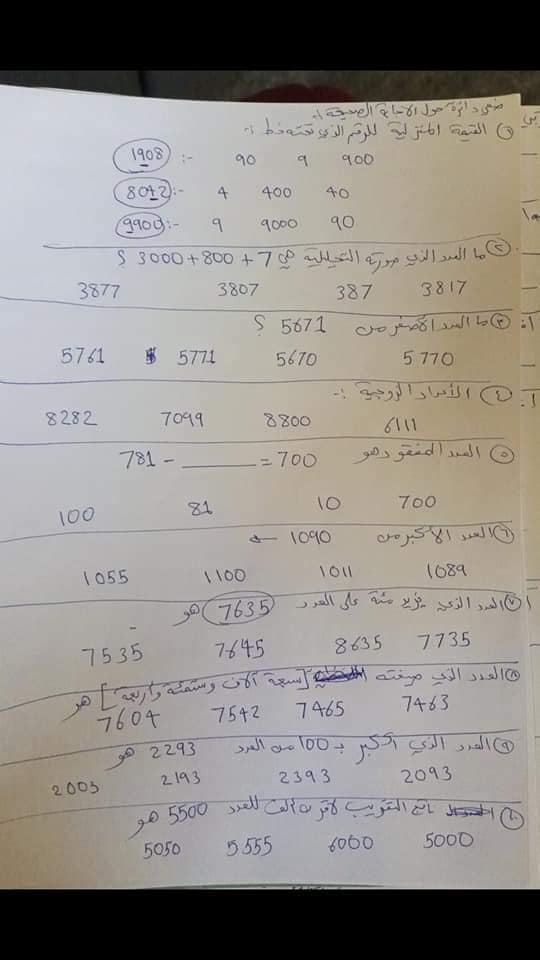 ضعي دائرة حول الاجابة الصحيحة :-
① القيمة المنزلية للرقم الذي تحته خط :-
1908 :- 90 9 900
8042 :- 4 400 40
9900 :- 9 9000 90
② ما العدد الذي صورته التحليلية هي 7 + 800 + 3000 ؟
3877 3807 387 3817
③ ما العدد الأصغر من 5671 ؟
5761 5771 5670 5770
④ الأعداد الزوجية :-
8282 7099 8800 6111
⑤ العدد المفقود هو 781 - ______ = 700
100 81 10 700
⑥ العدد الأكبر من 1090
1055 1100 1011 1089
⑦ العدد الذي يزيد مئة على العدد 7635 هو
7535 7645 8635 7735
⑧ العدد الذي صيغته [سبعة آلاف وستمئة وأربعة] هو
7604 7542 7465 7463
⑨ العدد الذي أكبر بـ 100 من العدد 2293 هو
2003 2193 2393 2093
⑩ ناتج التقريب لأقرب ألف للعدد 5500 هو
5050 5555 6000 5000